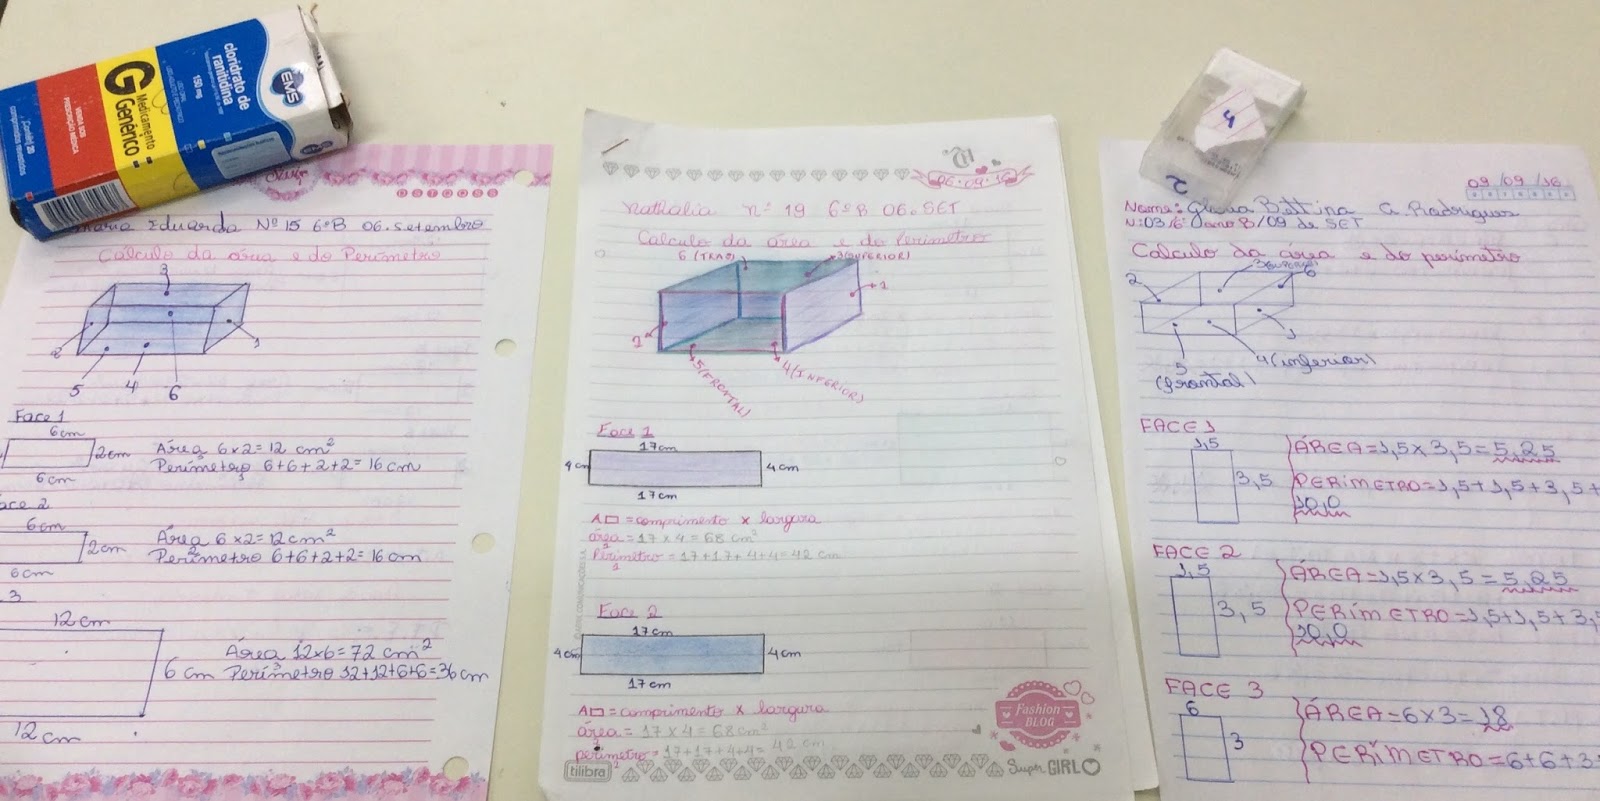 EMS
cloridrato de
ranitidina
150 mg
G
Medicamento
Genérico
VENDA SOB
PRESCRIÇÃO MÉDICA
Contém 20
comprimidos revestidos
Maria Eduarda Nº 15 6ºB 06. setembro
Cálculo da área e do Perímetro
3
2
1
5 4 6
Face 1
6cm
2cm
6cm
Área 6x2=12 cm²
Perímetro 6+6+2+2=16cm
ace 2
6cm
2cm
6cm
Área 6x2=12cm²
Perímetro 6+6+2+2=16cm
3
12cm
6 cm
12cm
Área 12x6=72 cm²
Perímetro 12+12+6+6=36cm
06.09.16
Nathalia nº 19 6ºB 06.SET
Calculo da área e do Perimetro
6 (TRAS)
3 (SUPERIOR)
1
2
5 (FRONTAL)
4 (INFERIOR)
Face 1
17cm
4cm
4cm
17cm
A▭ = comprimento x largura
área = 17x4=68 cm²
Perímetro = 17+17+4+4=42 cm
1
Face 2
17cm
4cm
4cm
17cm
A▭ = comprimento x largura
área = 17x4=68cm²
perímetro = 17+17+4+4= 42 cm
2
Fashion
BLOG
tilibra
Super GIRL
4
2
09/09/16
Nome: Bettina G. Rodrigues
N:03/6º ano B/09 de SET
Calculo da área e do perímetro
2
6
5
(frontal)
4 (inferior)
1
FACE 1
1,5
3,5
ÁREA=1,5x3,5=5,25
PERÍMETRO=1,5+1,5+3,5+
10,0
FACE 2
1,5
3,5
ÁREA=1,5x3,5=5,25
PERÍMETRO=1,5+1,5+3,5
10,0
FACE 3
6
3
ÁREA=6x3=18
PERÍMETRO=6+6+3